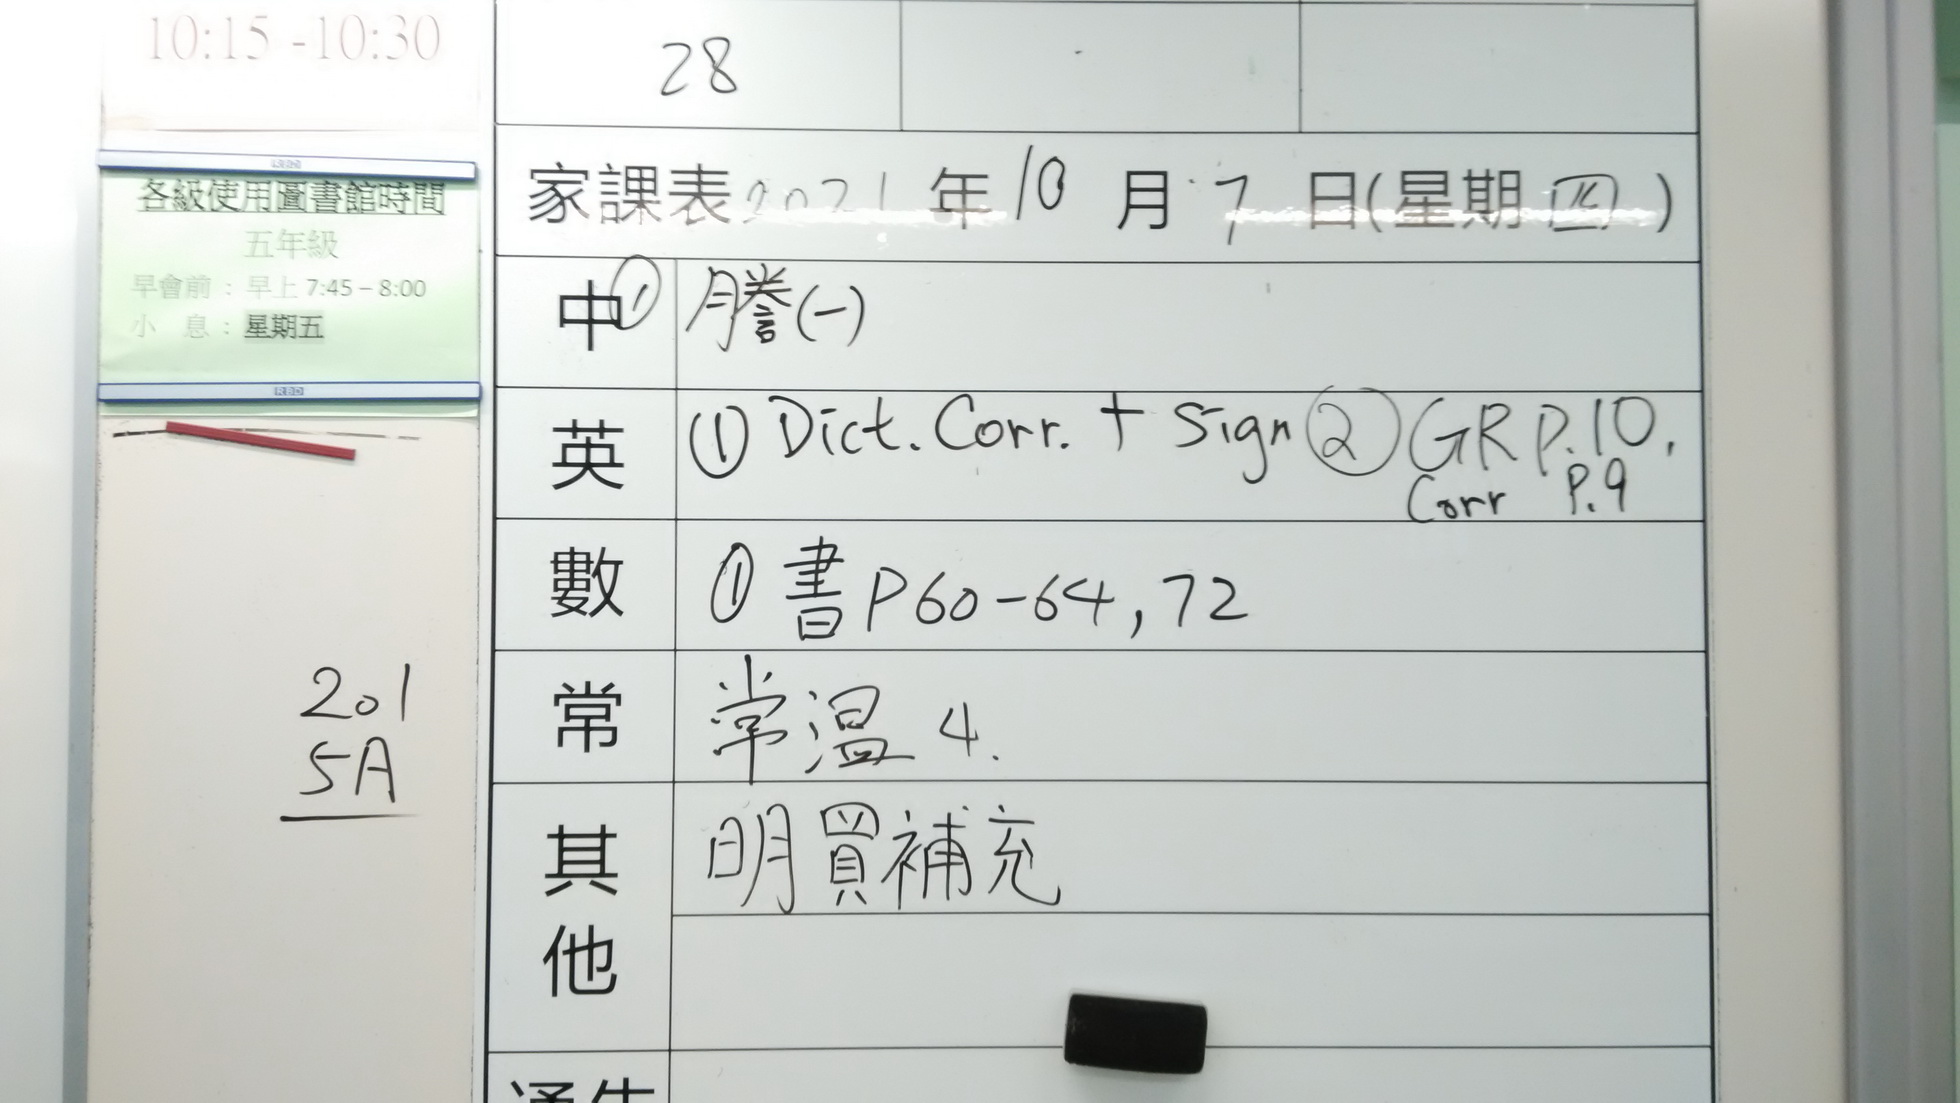 10:15 -10:30
28
各級使用圖書館時間
五年級
早會前 : 早上 7:45 – 8:00
小 息 : 星期五
201
5A
家課表 2021 年 10 月 7 日(星期 四)
中 ① 謄(一)
英 ① Dict. Corr. + Sign ② GR P.10,
Corr P.9
數 ① 書 P60-64, 72
常 常温 4.
其他 明買補充
通告